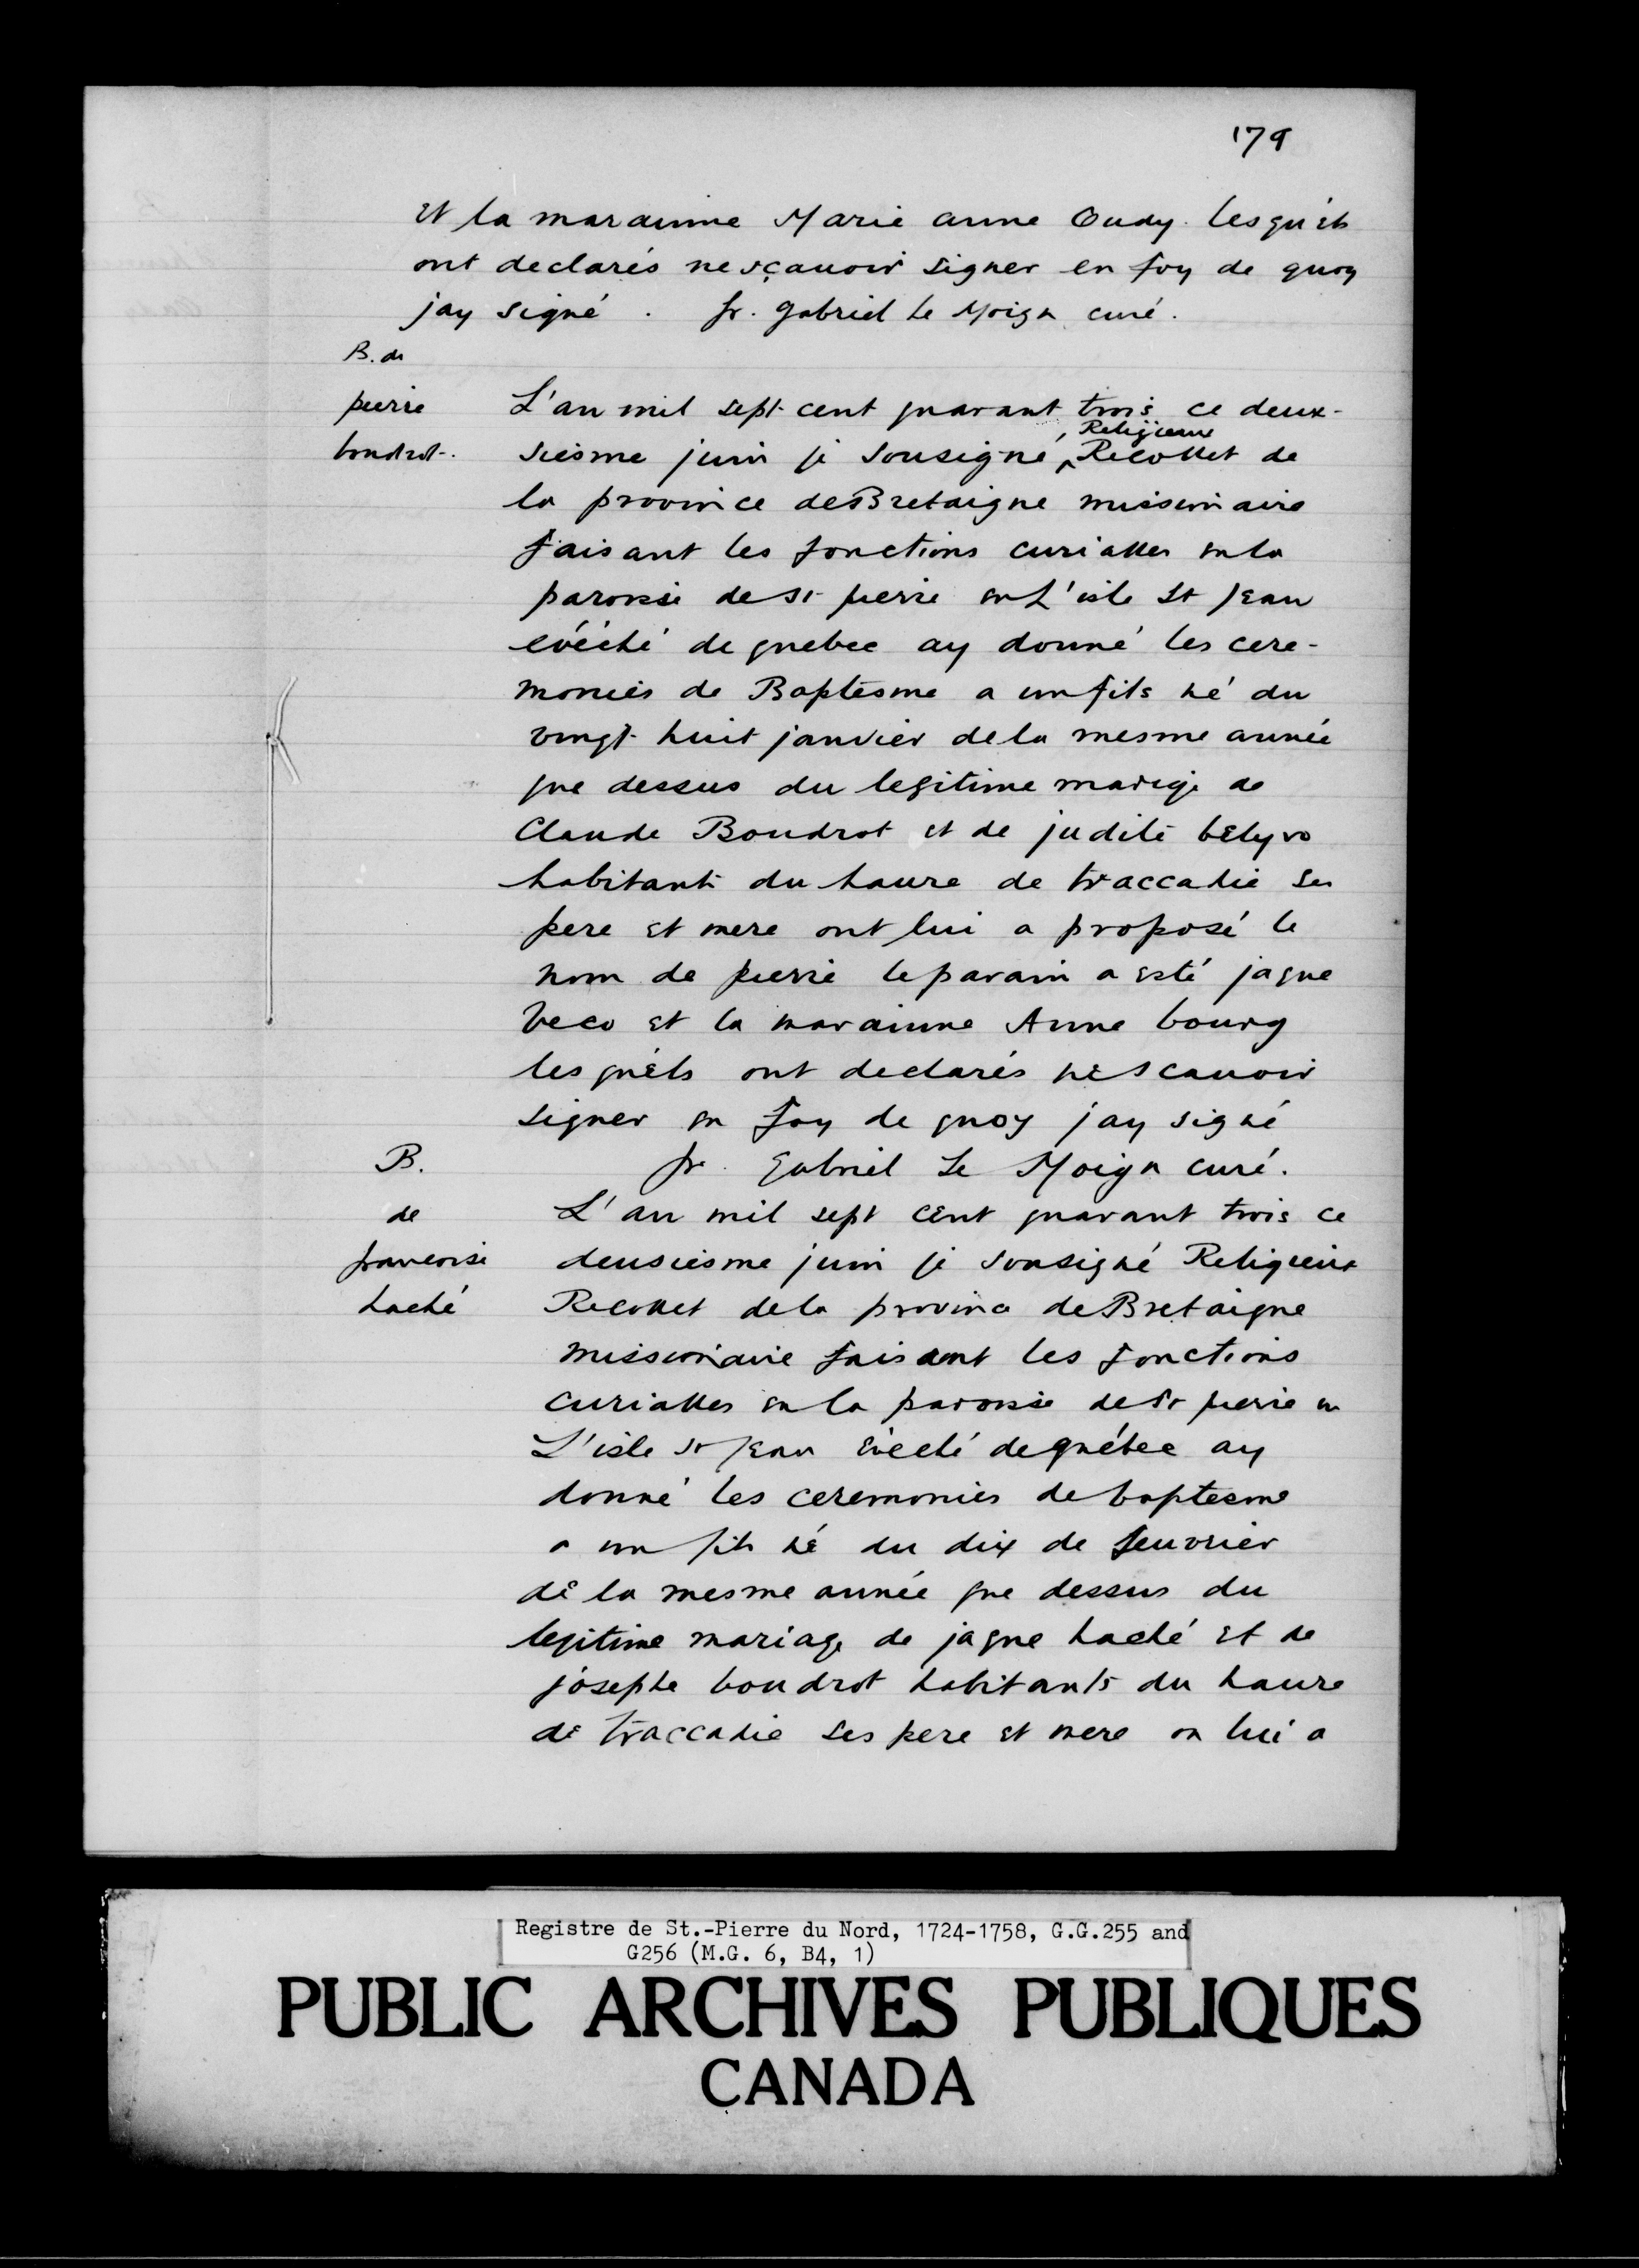 179
et la marainne Marie anne Oudy. lesquels
ont declarés nesçauoir signer en foy de quoy
jay signé. fr. gabriel le Moign curé.
B. de
pierre
boudrot.
L'an mil sept cent quarant trois ce deux-
Religieux
siesme juin je sousigné, Recollet de
la province de Bretaigne missionaire
faisant les fonctions curialles en la
paroisse de st pierre en L'isle St Jean
evéché de quebec ay donné les cere-
monies de Baptesme a un fils né du
vingt huit janvier de la mesme année
que dessus du legitime marige de
Claude Boudrot et de judite belyvo
habitants du haure de traccadie ses
pere et mere ont lui a proposé le
nom de pierre le parain a esté jaque
Veco et la marainne Anne bourg
les quels ont declarés ne scauoir
signer en foy de quoy jay signé
fr. Gabriel Le Moign curé.
B.
de
francoise
haché
L'an mil sept cent quarant trois ce
deusiesme juin je sousigné Religieux
Recollet de la province de Bretaigne
missionaire faisant les fonctions
curialles en la paroisse de St pierre en
L'isle St Jean evêché de québec ay
donné les ceremonies de baptesme
a un fils né du dix de feuvrier
de la mesme année que dessus du
legitime mariage de jaque haché et de
josephe boudrot habitants du haure
de traccadie ses pere et mere on lui a
Registre de St.-Pierre du Nord, 1724-1758, G.G.255 and
G256 (M.G. 6, B4, 1)
PUBLIC ARCHIVES PUBLIQUES
CANADA